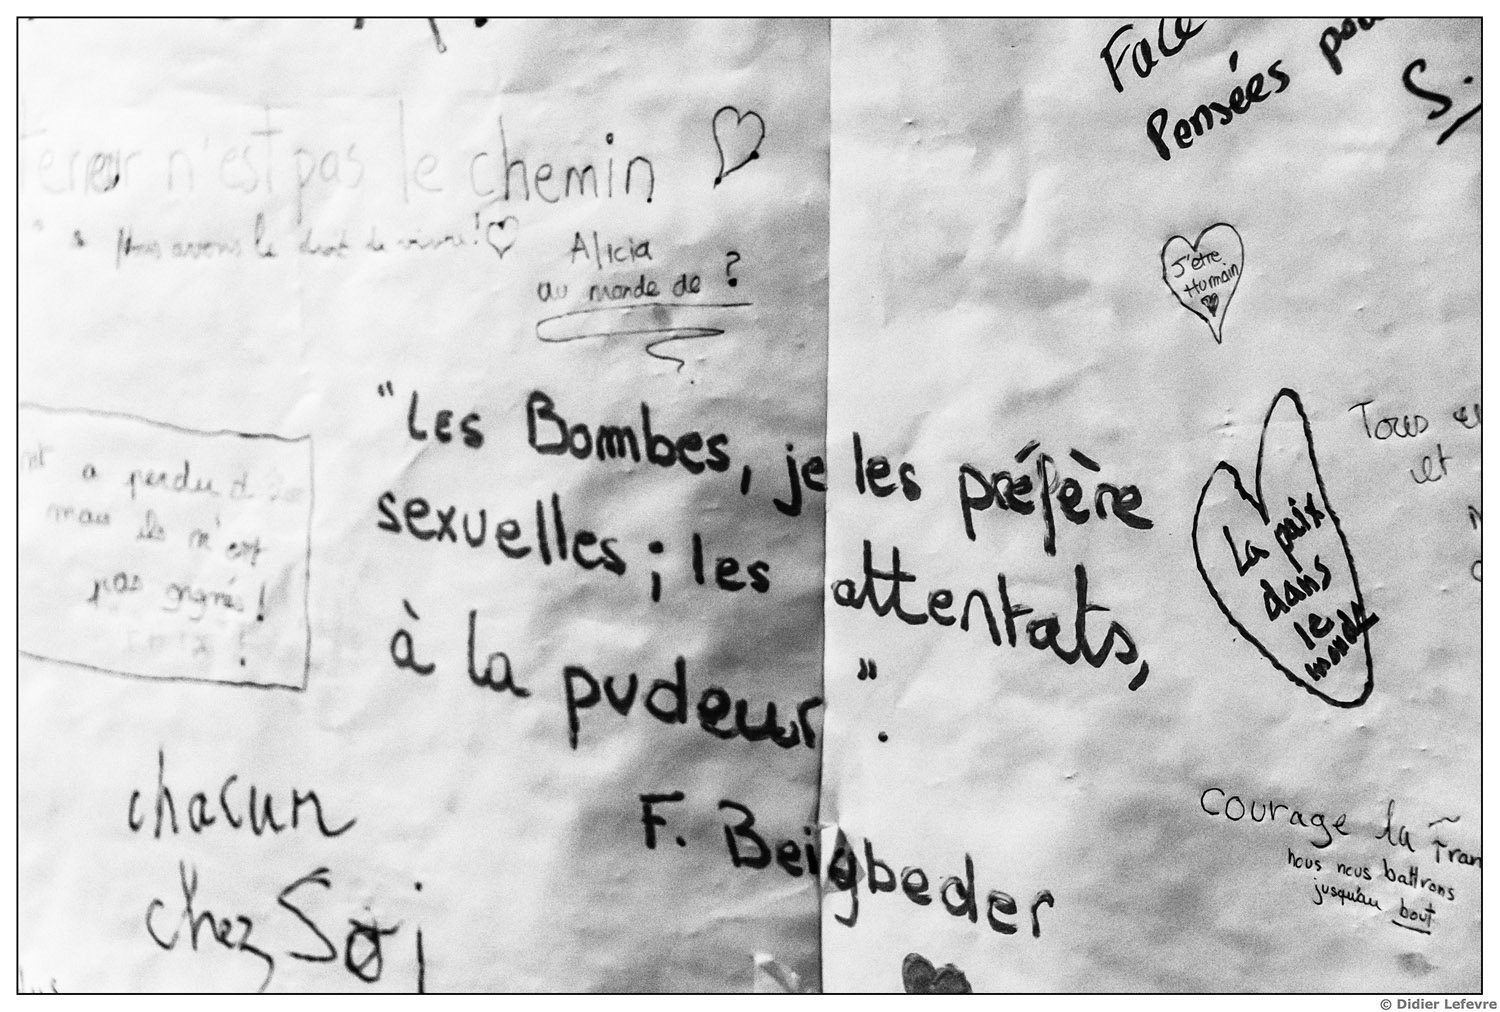 Face
Pensées
Terreur n'est pas le chemin
Nous avons le droit de vivre!
Alicia
au monde de ?
J'etre
Humain
"Les Bombes, je les préfère
sexuelles ; les attentats,
à la pudeur".
F. Beigbeder
a perdu
mais ils n'ont
pas gagnés!
La paix
dans
le
monde
Tous
et
chacun
chez Soi
Courage la Fran
nous nous battrons
jusqu'au bout
© Didier Lefevre